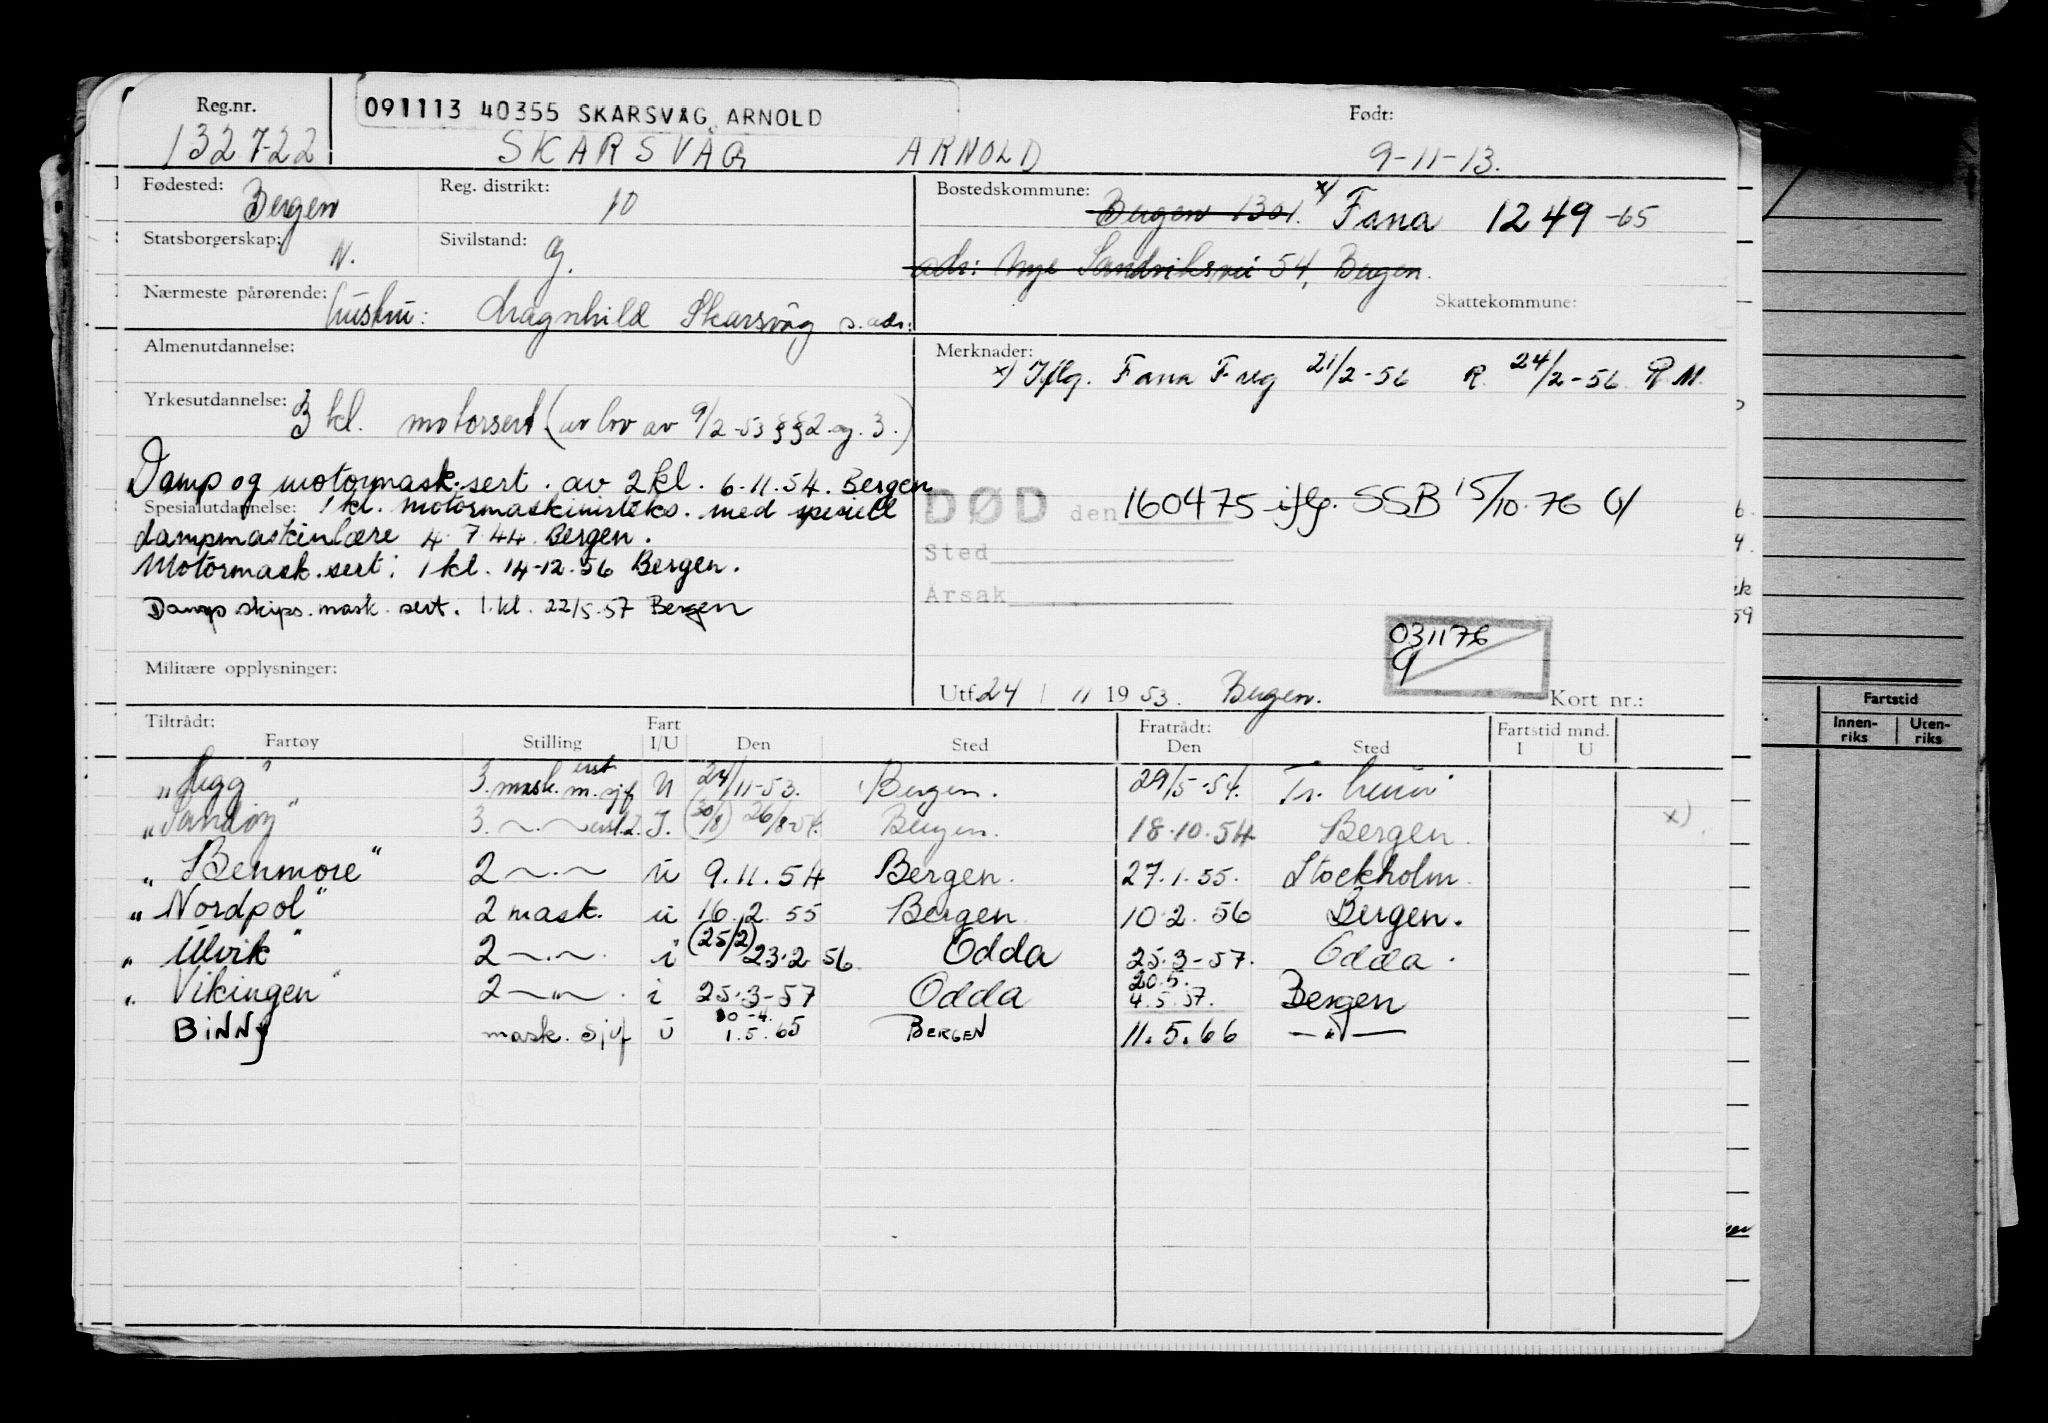 Reg.nr. 091113 40355 SKARSVÅG, ARNOLD Født:
132722 SKARSVÅG ARNOLD 9-11-13.
Fødested: Bergen Reg. distrikt: 10 Bostedskommune: Bergen 1301. x) Fana 1249 -65
Statsborgerskap: N. Sivilstand: g. adr: Nye Sandviksvei 54, Bergen.
Nærmeste pårørende: hustru: Skarsvåg s. adr: Skattekommune:
Almenutdannelse: Merknader: x) Iflg. Fana F reg 21/2-56 R. 24/2-56 R.M.
Yrkesutdannelse: 3 kl. motorsert (av lov av 9/2-53 §§2 og 3.)
Damp og motormask.sert. av 2 kl. 6-11.54. Bergen
Spesialutdannelse: 1 kl. motormaskinisteks. med spesiell DØD den 160475 iflg. SSB 15/10.76
dampmaskinlære 4.7.44. Bergen.
Sted
Motormask.sert: 1 kl. 14-12.56 Bergen.
Årsak
Damp skips.mask.sert. 1.kl. 22/5.57 Bergen
031176
9
Militære opplysninger:
Utf. 24 / 11 1953. Bergen. Kort nr.:
Tiltrådt: Fart Fratrådt: Fartstid mnd.
Fartøy Stilling I/U Den Sted Den Sted I U
3. mask. m. sjf U 24/11-53. Bergen. 29/5-54.
3. I. (30/8) 26/8-54. Bergen. 18.10.54 Bergen. x)
„Benmore" 2 ~.~ u 9.11.54 Bergen. 27.1.55. Stockholm.
„Nordpol" 2 mask. u 16.2.55 Bergen 10.2.56 Bergen.
„Ulvik" 2 ~.~. i (25/2) 23.2.56. Odda 25.3-57. Odda.
„Vikingen" 2 ~„~. i 25.3-57 Odda 20.5. 4.5.57. Bergen
BiNNy mask. sjf u 30-4. 1.5.65 BERGEN 11.5.66 —„—
Fartstid
Innen-
riks
Uten-
riks